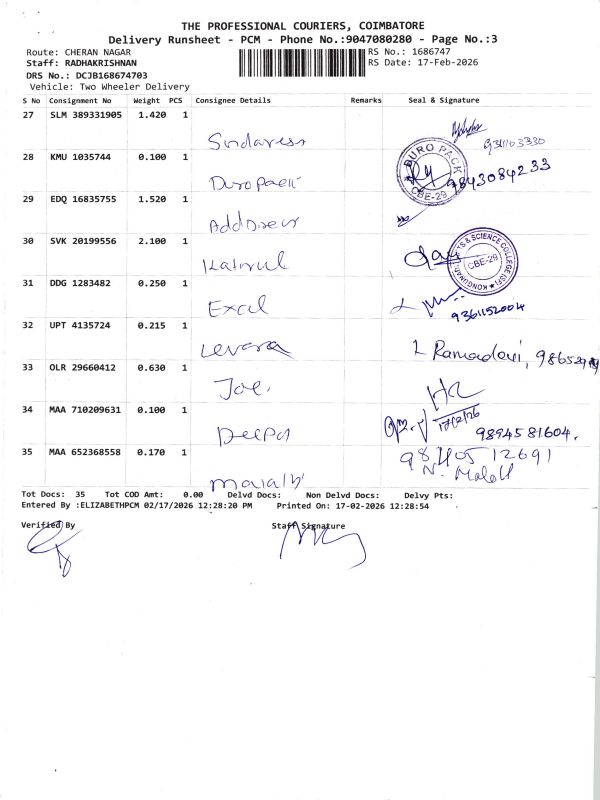 THE PROFESSIONAL COURIERS, COIMBATORE
Delivery Runsheet - PCM - Phone No.:9047080280 - Page No.:3
Route: CHERAN NAGAR
RS No.: 1686747
Staff: RADHAKRISHNAN
RS Date: 17-Feb-2026
DRS No.: DCJB168674703
Vehicle: Two Wheeler Delivery
S No Consignment No Weight PCS Consignee Details Remarks Seal & Signature
27 SLM 389331905 1.420 1
28 KMU 1035744 0.100 1
DURO PACK
CBE-29
9843084233
29 EDQ 16835755 1.520 1
30 SVK 20199556 2.100 1
TS & SCIENCE COLLEGE
CBE-29
31 DDG 1283482 0.250 1
Excel
9361152004
32 UPT 4135724 0.215 1
L Ramadevi,
33 OLR 29660412 0.630 1
Joe.
17/2/26
34 MAA 710209631 0.100 1
Deepa
9894581604.
35 MAA 652368558 0.170 1
98405 12691
Tot Docs: 35 Tot COD Amt: 0.00 Delvd Docs: Non Delvd Docs: Delvy Pts:
Entered By :ELIZABETHPCM 02/17/2026 12:28:20 PM Printed On: 17-02-2026 12:28:54
Verified By Staff Signature